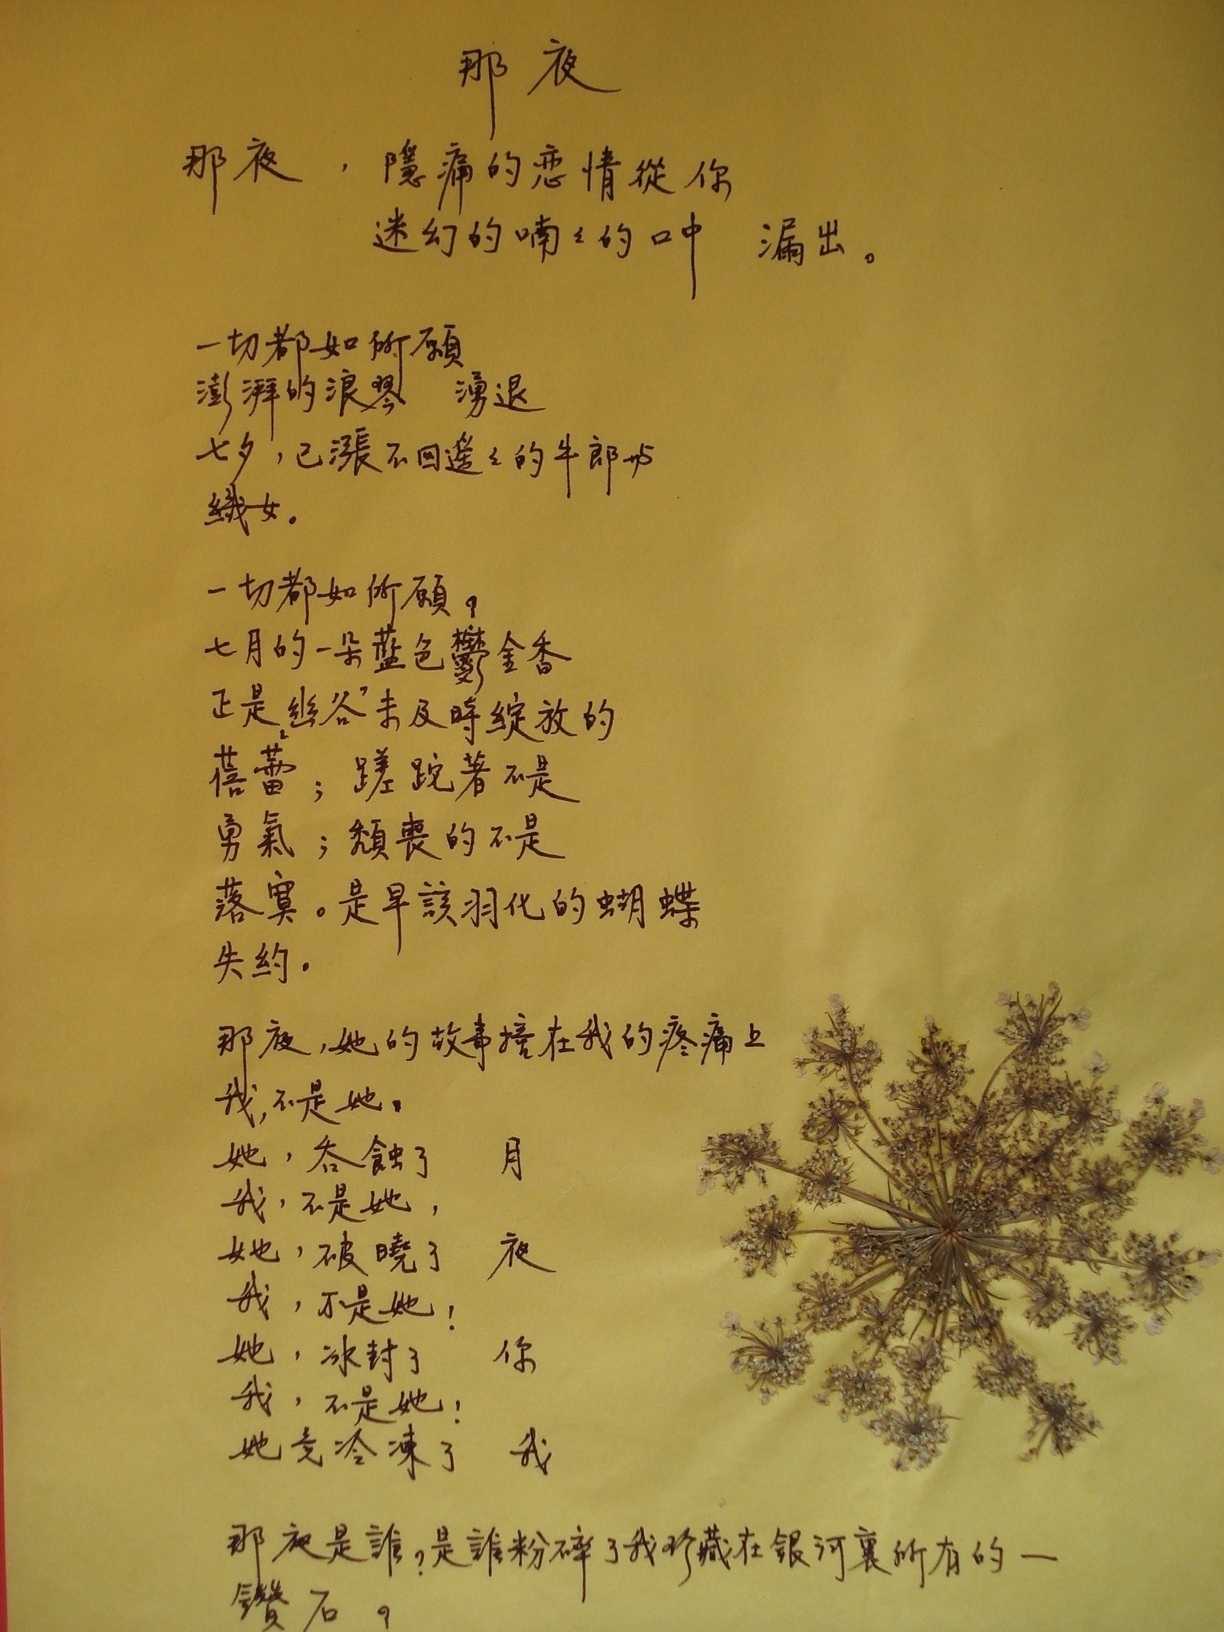 那夜
那夜，隱痛的恋情從你
迷幻的喃々的口中 漏出。
一切都如所願
澎湃的浪琴 湧退
七夕，已漲不回遙々的牛郎与
織女。
一切都如所願。
七月的一朵藍色鬱金香
正是幽谷，未及時綻放的
蓓蕾；蹉跎著不是
勇氣；頹喪的不是
落寞。是早該羽化的蝴蝶
失約。
那夜，她的故事搭在我的疼痛上
我，不是她。
她，吞蝕了 月
我，不是她，
她，破曉了 夜
我，不是她！
她，冰封了 你
我，不是她！
她竟冷凍了 我
那夜是誰？是誰粉碎了我珍藏在銀河裏所有的一
鑽石。